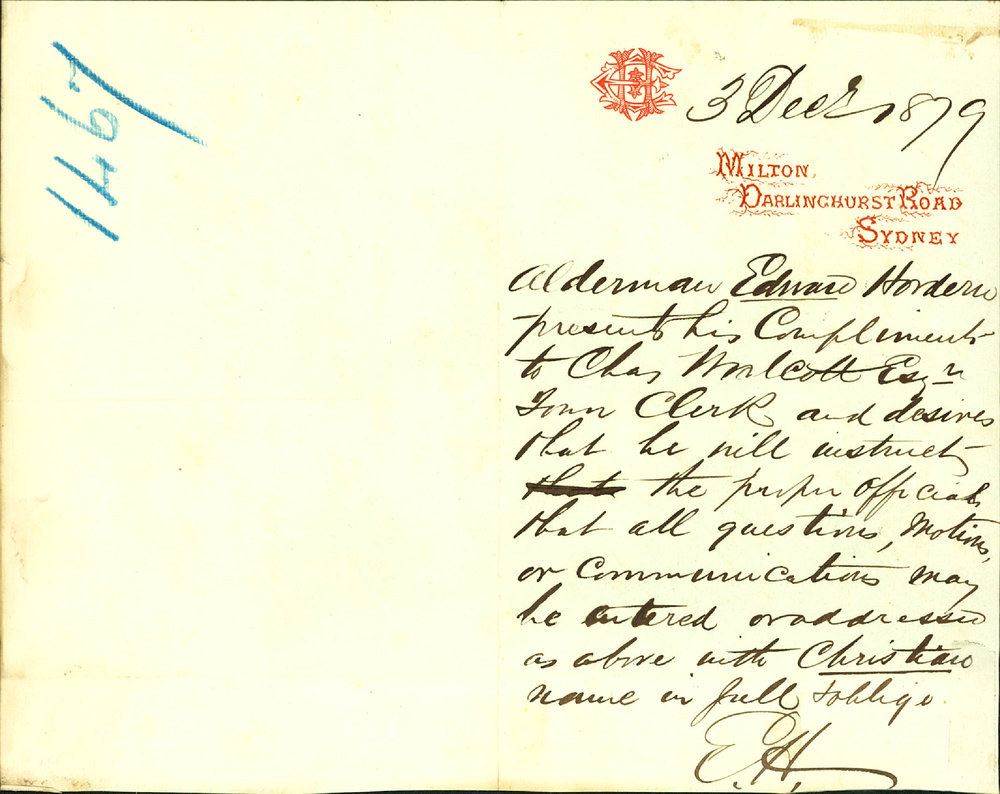 1467
3 Decr 1879
MILTON,
DARLINGHURST ROAD
SYDNEY
Alderman Edward Hordern
presents his Compliments
to Chas Woolcott Esqre
Town Clerk and desires
that he will instruct
that the proper officials
that all questions, Motions,
or Communications may
be entered or addressed
as above with Christian
name in full & oblige
E.H.